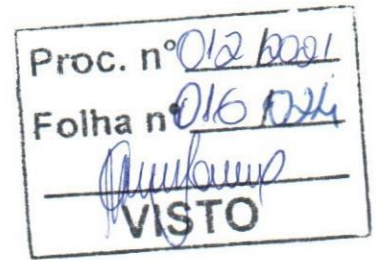 Proc. n° 012/2021
Folha n° 016
VISTO